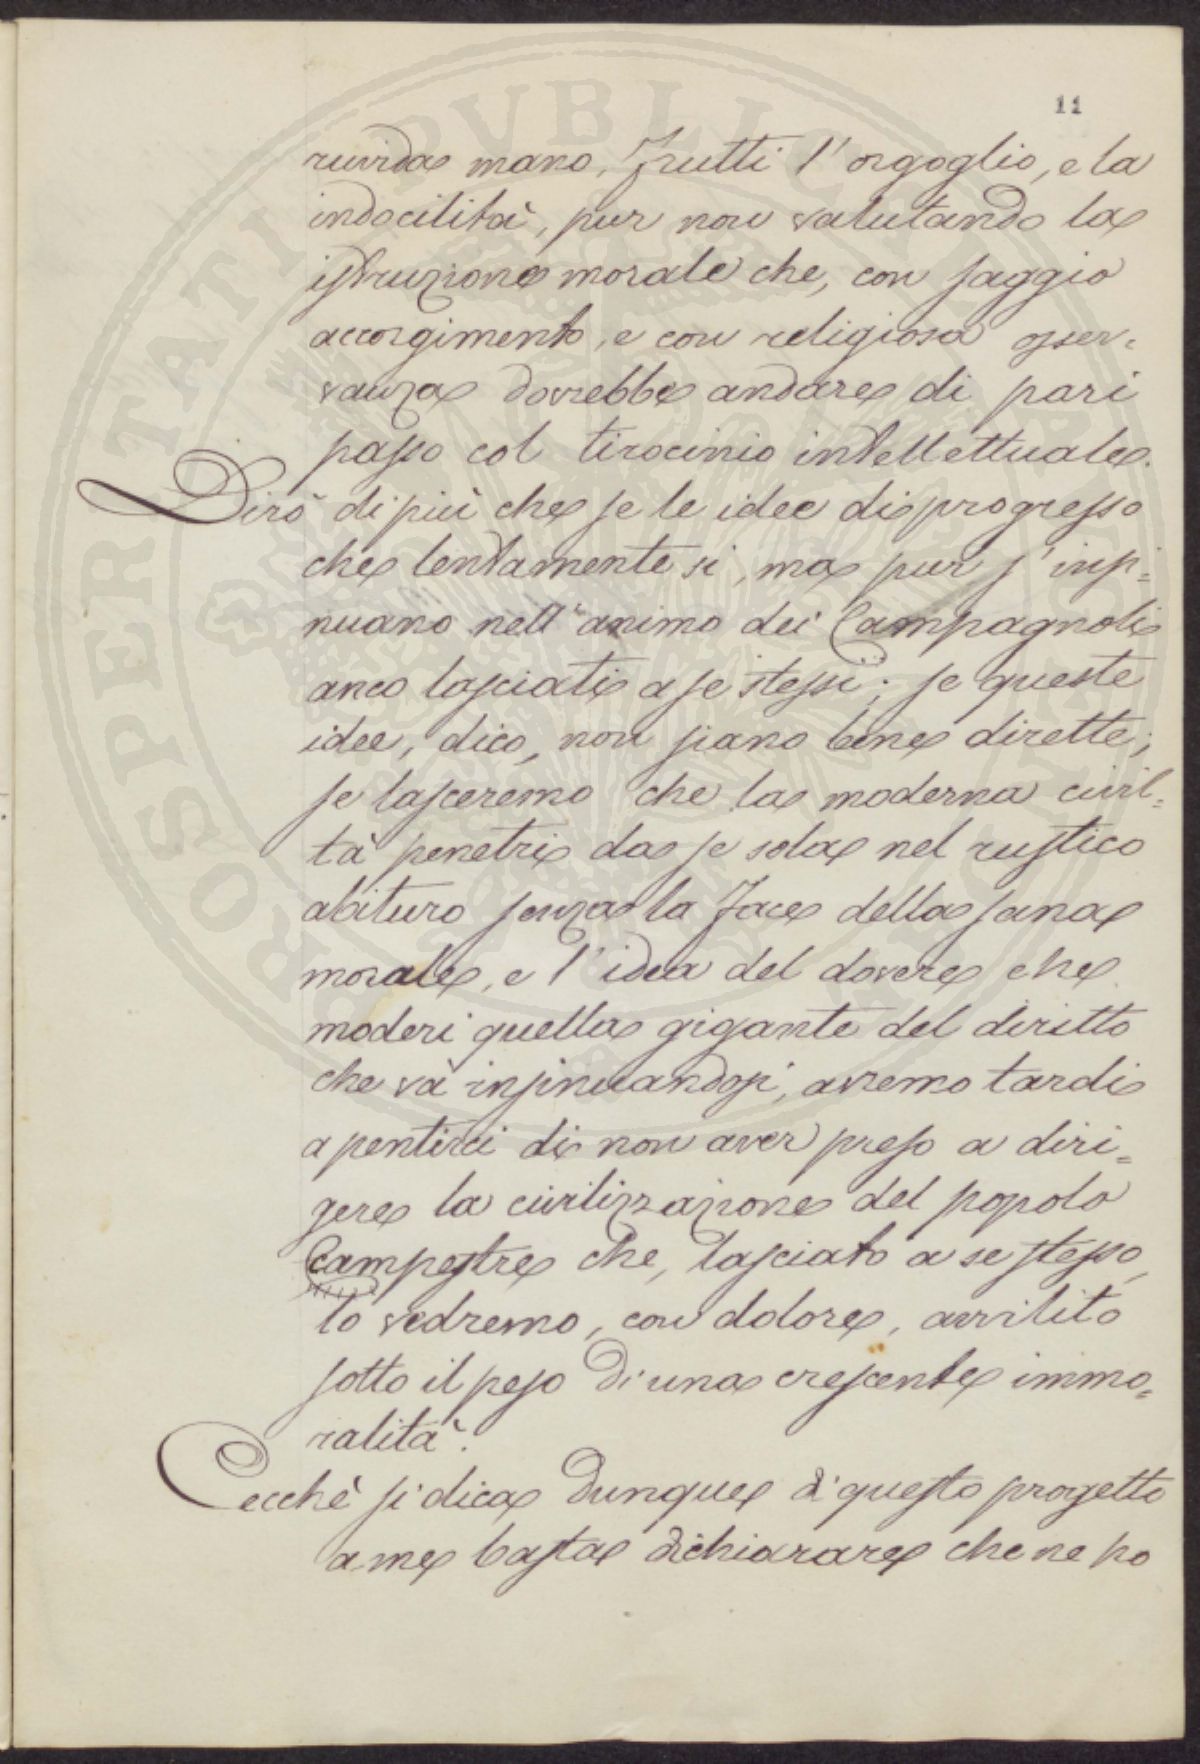 11
ruvida mano, frutti l'orgoglio, e la
indocilità, pur non valutando la
istruzione morale che, con saggio
accorgimento, e con religiosa osser=
vanza dovrebbe andare di pari
passo col tirocinio intellettuale.
Dirò di più che se le idee di progresso
che lentamente si, ma pur s'insi=
nuano nell'animo dei Campagnoli
anco lasciati a se stessi; se queste
idee, dico, non siano bene dirette;
se lasceremo che la moderna civil=
tà penetri da se sola nel rustico
abituro senza la face della sana
morale, e l'idea del dovere che
moderi quella gigante del diritto
che và insinuandosi, avremo tardi
a pentirci di non aver preso a diri=
gere la civilizzazione del popolo
Campestre che, lasciato a se stesso,
lo vedremo, con dolore, avvilito
sotto il peso di una crescente immo=
ralità.
Cecchè si dica dunque di questo progetto
a me basta dichiarare che ne ho
PROSPERITATI PUBLICAE